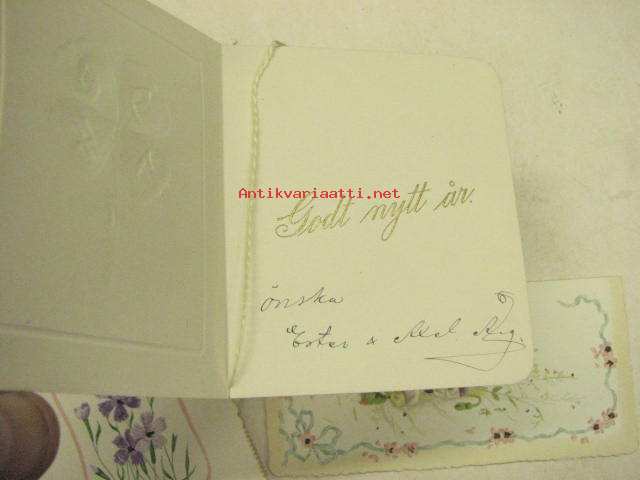 Antikvariaatti.net
Godt nytt år.
önska
Ester &